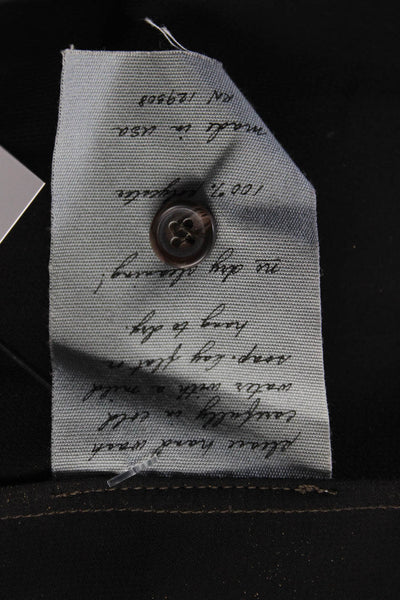 please hand wash
carefully in cold
water with a mild
soap. Lay flat or
hang to dry.
no dry cleaning!
100%
made in usa
RN 129508